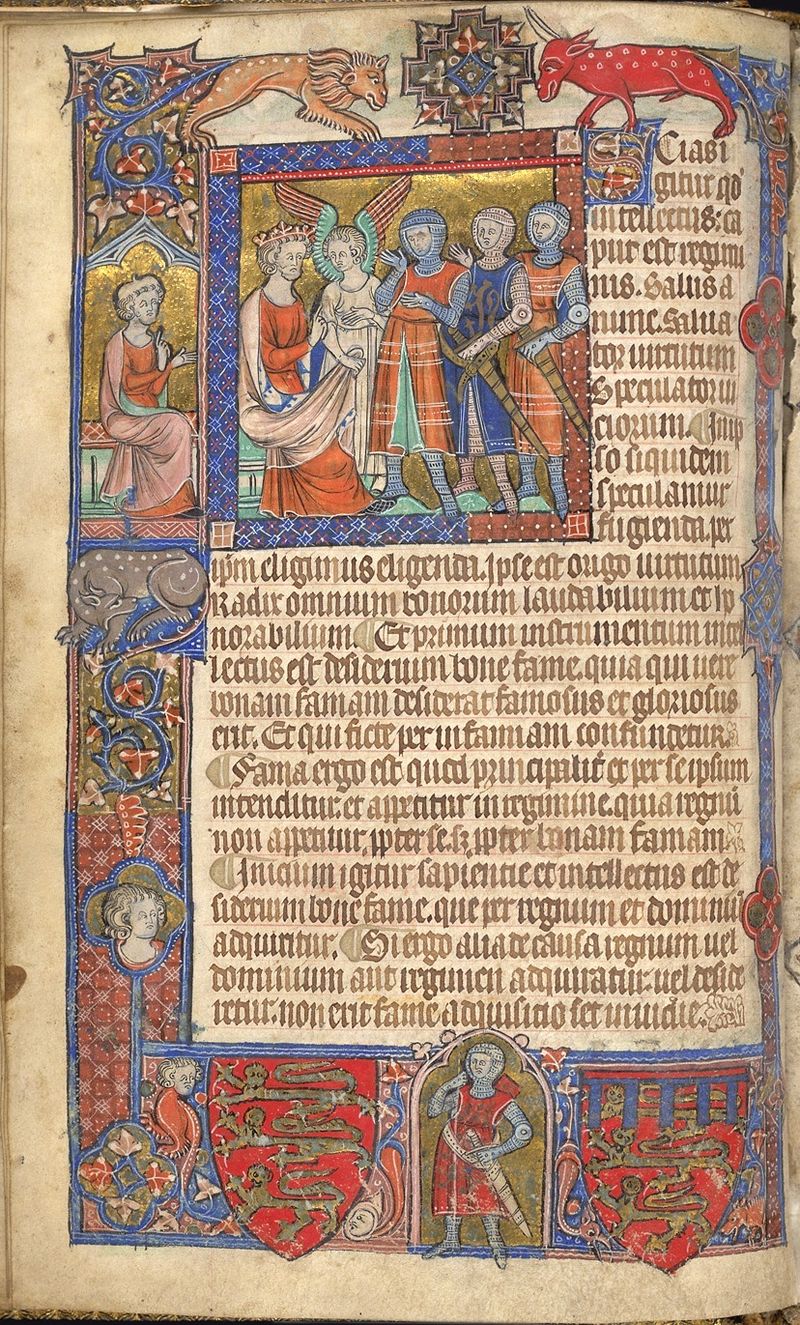 Scias i
gitur qd'
intellectus: ca
put est regimi
nis. Salus a
nime. Salua
tor uirtutum
Speculator ui
ciorum. ¶ In ip
so siquidem
speculamur
fugienda. per
ipm eligimus eligenda. Ipse est origo uirtutum
Radix omnium bonorum laudabilium et ho
norabilium. ¶ Et primum instrumentum intel
lectus est desiderium bone fame. quia qui uere
bonam famam desiderat famosus et gloriosus
erit. Et qui ficte per infamiam confundetur.
¶ Fama ergo est quod principalit' et per se ipsum
intenditur. et appetitur in regimine. quia regnū
non appetitur, ppter se. sꝫ ppter bonam famam.
¶ Inicium igitur sapientie et intellectus est de
siderium bone fame. que per regnum et dominiū
adquiritur. ¶ Si ergo alia de causa regnum uel
dominium aut regimen adquiratur: uel deside
retur. non erit fame adquisicio set inuidie.